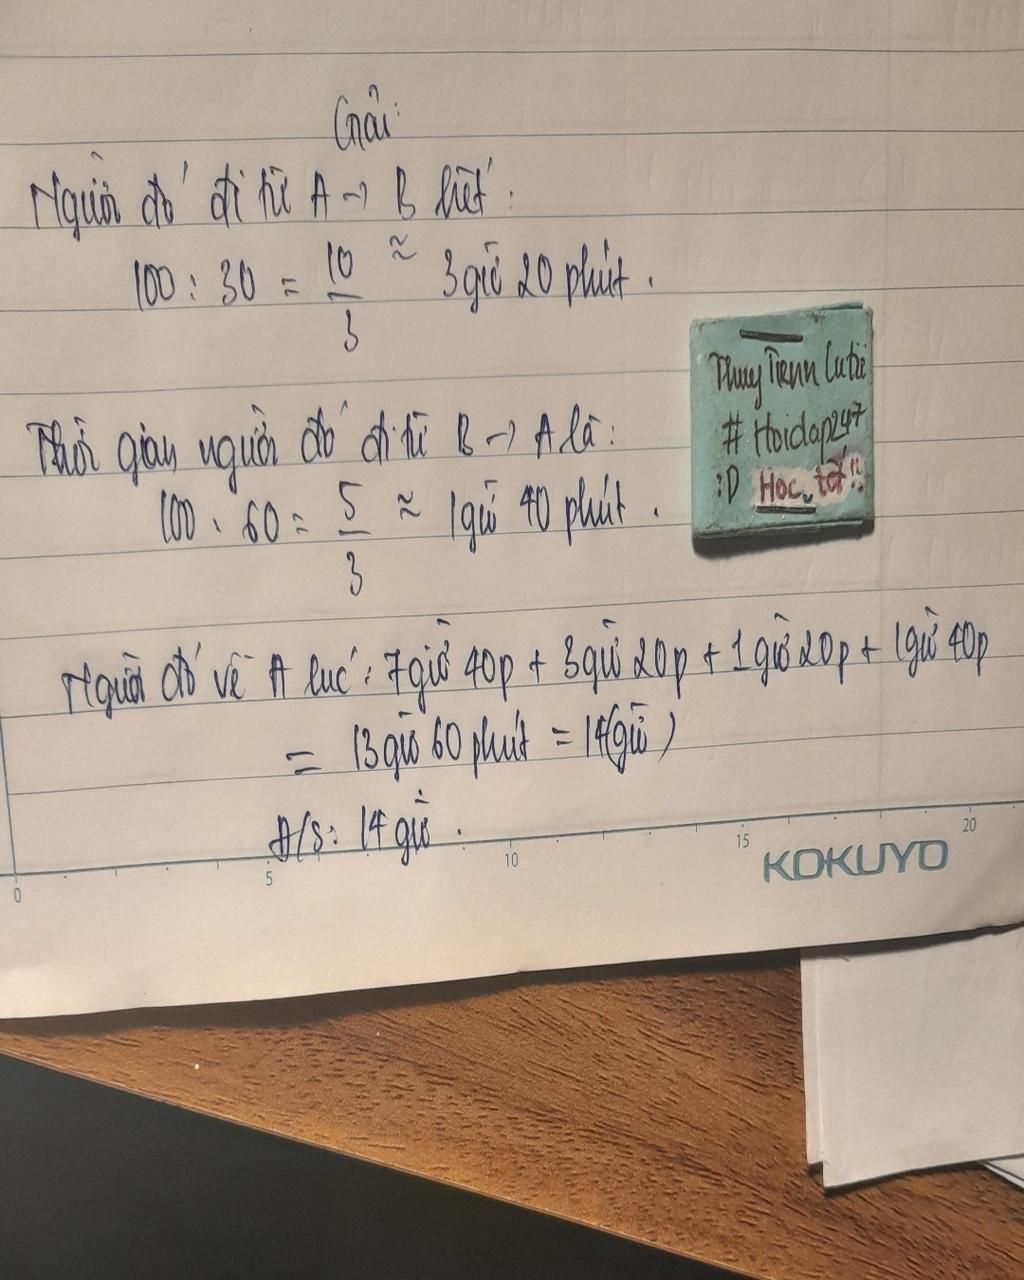 Giải:
Người đó đi từ A → B hết:
100 : 30 = 10/3 ≈ 3 giờ 20 phút.
Thời gian người đó đi từ B → A là:
100 : 60 = 5/3 ≈ 1 giờ 40 phút.
Người đó về A lúc: 7 giờ 40p + 3 giờ 20p + 1 giờ 20p + 1 giờ 40p
= 13 giờ 60 phút = 14 (giờ)
Đ/S: 14 giờ.
Thuy Tienn Cutii
# Hoidap247
:D Học tốt!!
0 5 10 15 20
KOKUYO